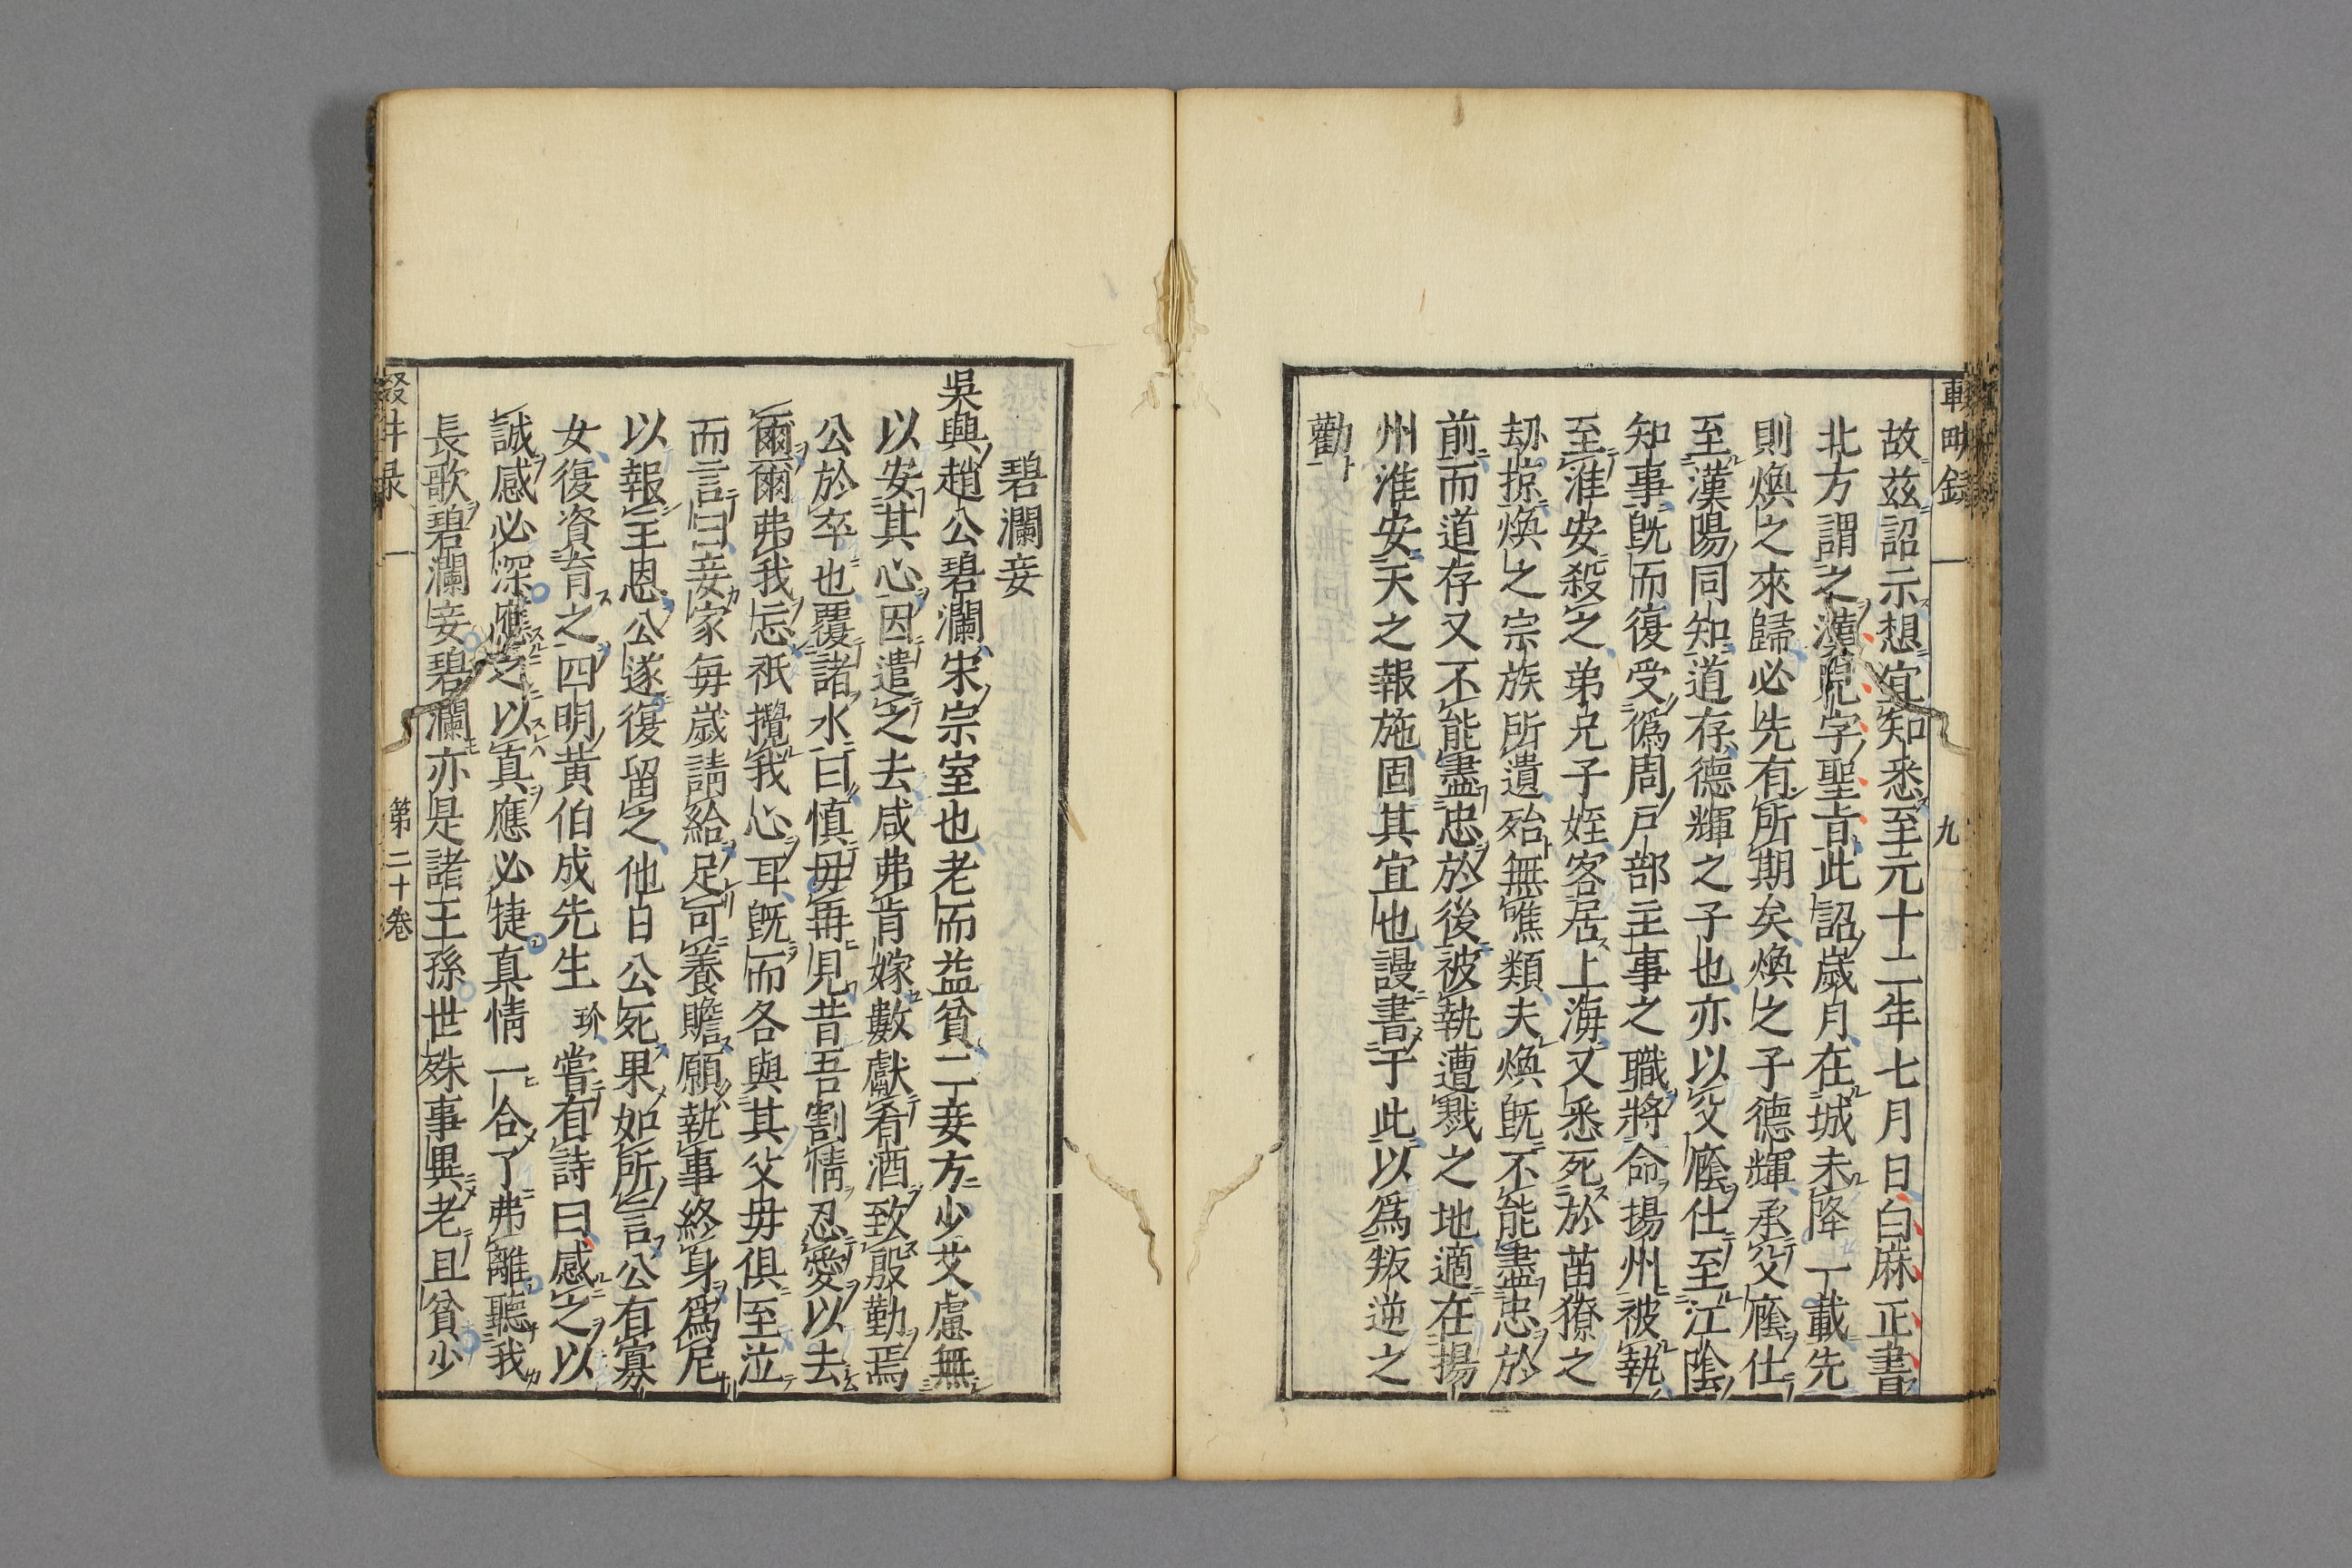 九
故茲詔示想宜知悉至元十二年七月日白麻正書
北方謂之漢兒字聖旨此詔歲月在城未降一載先
則煥之來歸必先有所期矣煥之子德輝承父廕仕
至漢陽同知道存德輝之子也亦以父廕仕至江陰
知事既而復受僞周戸部主事之職將命揚州被執
至淮安殺之弟兄子姪客居上海又悉死於苗獠之
刼掠煥之宗族所遺殆無噍類夫煥既不能盡忠於
前而道存又不能盡忠於後被執遭戮之地適在揚
州淮安天之報施固其宜也謾書于此以爲叛逆之
勸
碧瀾妾
吳興趙公碧瀾宋宗室也老而益貧二妾方少艾慮無
以安其心因遣之去咸弗肯嫁數獻肴酒致殷勤焉
公於卒也覆諸水曰慎毋再見昔吾割情忍愛以去
爾爾弗我忘祇攪我心耳既而各與其父毋俱至泣
而言曰妾家毎歲請給足可養贍願執事終身爲尼
以報主恩公遂復留之他日公死果如所言公有寡
女復資育之四明黄伯成先生玠嘗有詩曰感之以
誠感必深應之以真應必捷真情一合了弗離聽我
長歌碧瀾妾碧瀾亦是諸王孫世殊事異老且貧少
第二十卷